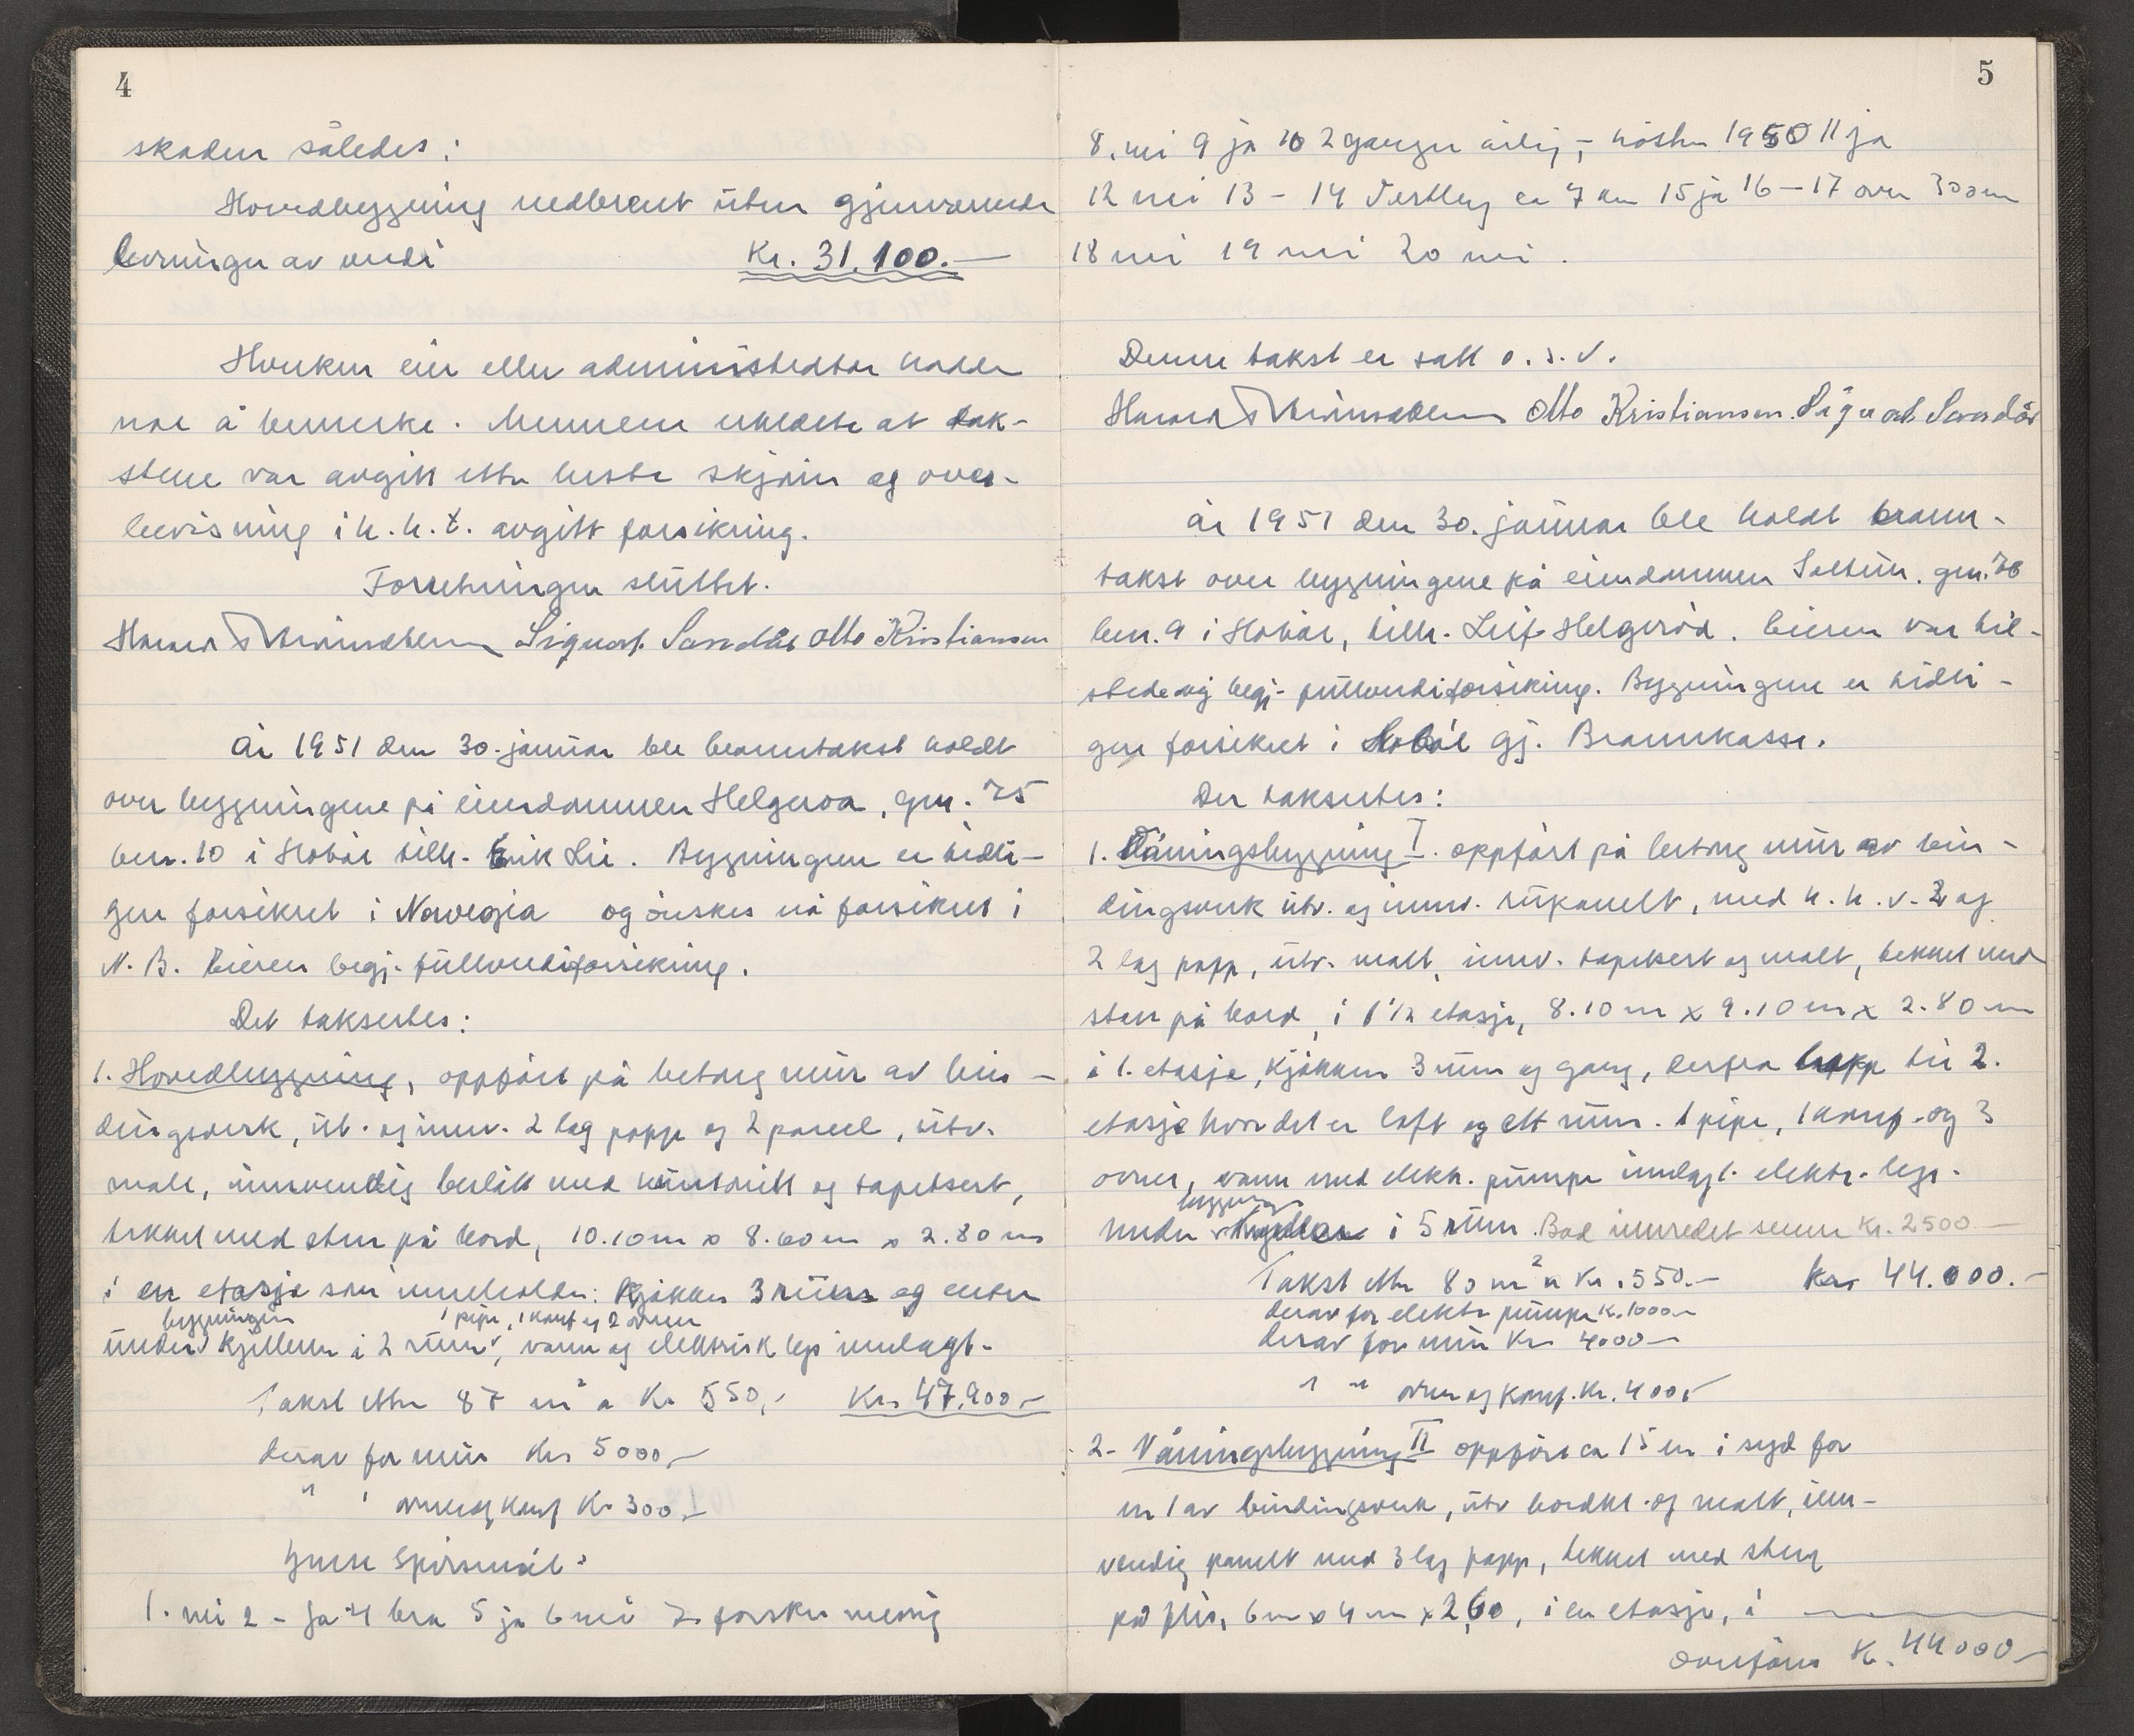 4
skaden således:
Hovedbygning nedbrent uten gjenværende
levninger av verdi Kr. 31.100.—
Hverken eier eller administrator hadde
noe å bemerke. Mennene erklærte at tak-
stene var avgitt etter beste skjønn og over-
bevisning i h.h.t. avgitt forsikring.
Forretningen sluttet.
Sigurd. Sandås Otto Kristiansen
År 1951 den 30. januar ble branntakst holdt
over bygningene på eiendommen Helgeroa, gnr. 75
bnr. 10 i Hobøl tilh. Erik Lie. Bygningen er tidli-
gere forsikret i Norvegia og ønskes nå forsikret i
N.B. Eieren begj. fullverdiforsikring.
Det taksertes:
1. Hovedbygning, oppført på betong mur av bin-
dingsverk, utv. og innv. 2 lag papp og 2 panel, utv.
malt, innvendig beslått med huntonitt og tapetsert,
tekket med sten på bord, 10.10 m x 8.60 m x 2.80 m
i en etasje som inneholder: Kjøkken 3 rum og entre
bygningen 1 pipe, 1 komf og 2 ovner
under kjelleren i 2 rum, vann og elektrisk lys innlagt.
Takst etter 87 m² a Kr 550,- Kr. 47.900,-
derav for mur Kr 5000,-
" " ovner og komf Kr. 300,-
Yngre spørsmål:
1. nei 2 - Ja 4 bra 5 ja 6 nei 7. forskr. messig
5
8. nei 9 ja 10 2 ganger årlig, - høsten 1950 11 ja
12 nei 13 - 14 Tertbeg ca 7 km 15 ja 16 - 17 over 300 m
18 nei 19 nei 20 nei.
Denne takst er satt o.s.v.
Otto Kristiansen. Sigurd Sandås
År 1951 den 30. januar ble holdt brann-
takst over bygningene på eiendommen Solstun. gnr. 76
bnr. 9 i Hobøl, tilh. Leif Helgerød. Eieren var til-
stede og begj. fullverdiforsikring. Bygningene er tidli-
gere forsikret i Hobøl gj. Brannkasse.
Der taksertes:
1. Våningsbygning I. oppført på betong mur av bin-
dingsverk utv. og innv. rupanelt, med h.h.v. 2 og
2 lag papp, utv. malt, innv. tapetsert og malt, tekket med
sten på bord, i 1 1/2 etasje, 8.10 m x 9.10 m x 2.80 m
i 1. etasje, kjøkken 3 rum og gang, derfra trapp til 2.
etasje hvor det er loft og ett rum. 1 pipe, 1 komf. og 3
ovner, vann med elektr. pumpe innlagt. elektr. lys.
bygningen
under kjeller i 5 rum. Bad innredet senere Kr. 2500 —
Takst etter 80 m² a Kr. 550.— Kr. 44.000.—
derav for elektr pumpe Kr. 1000 —
derav for mur Kr 4000 —
" " ovner og komf. Kr. 400,-
2- Våningsbygning II oppført ca 15 m i syd for
nr 1 av bindingsverk, utv bordkl. og malt, inn-
vendig panelt med 3 lag papp, tekket med sten
på fliser, 6 m x 4 m x 2,60, i en etasje, i
overføres Kr. 44000 —